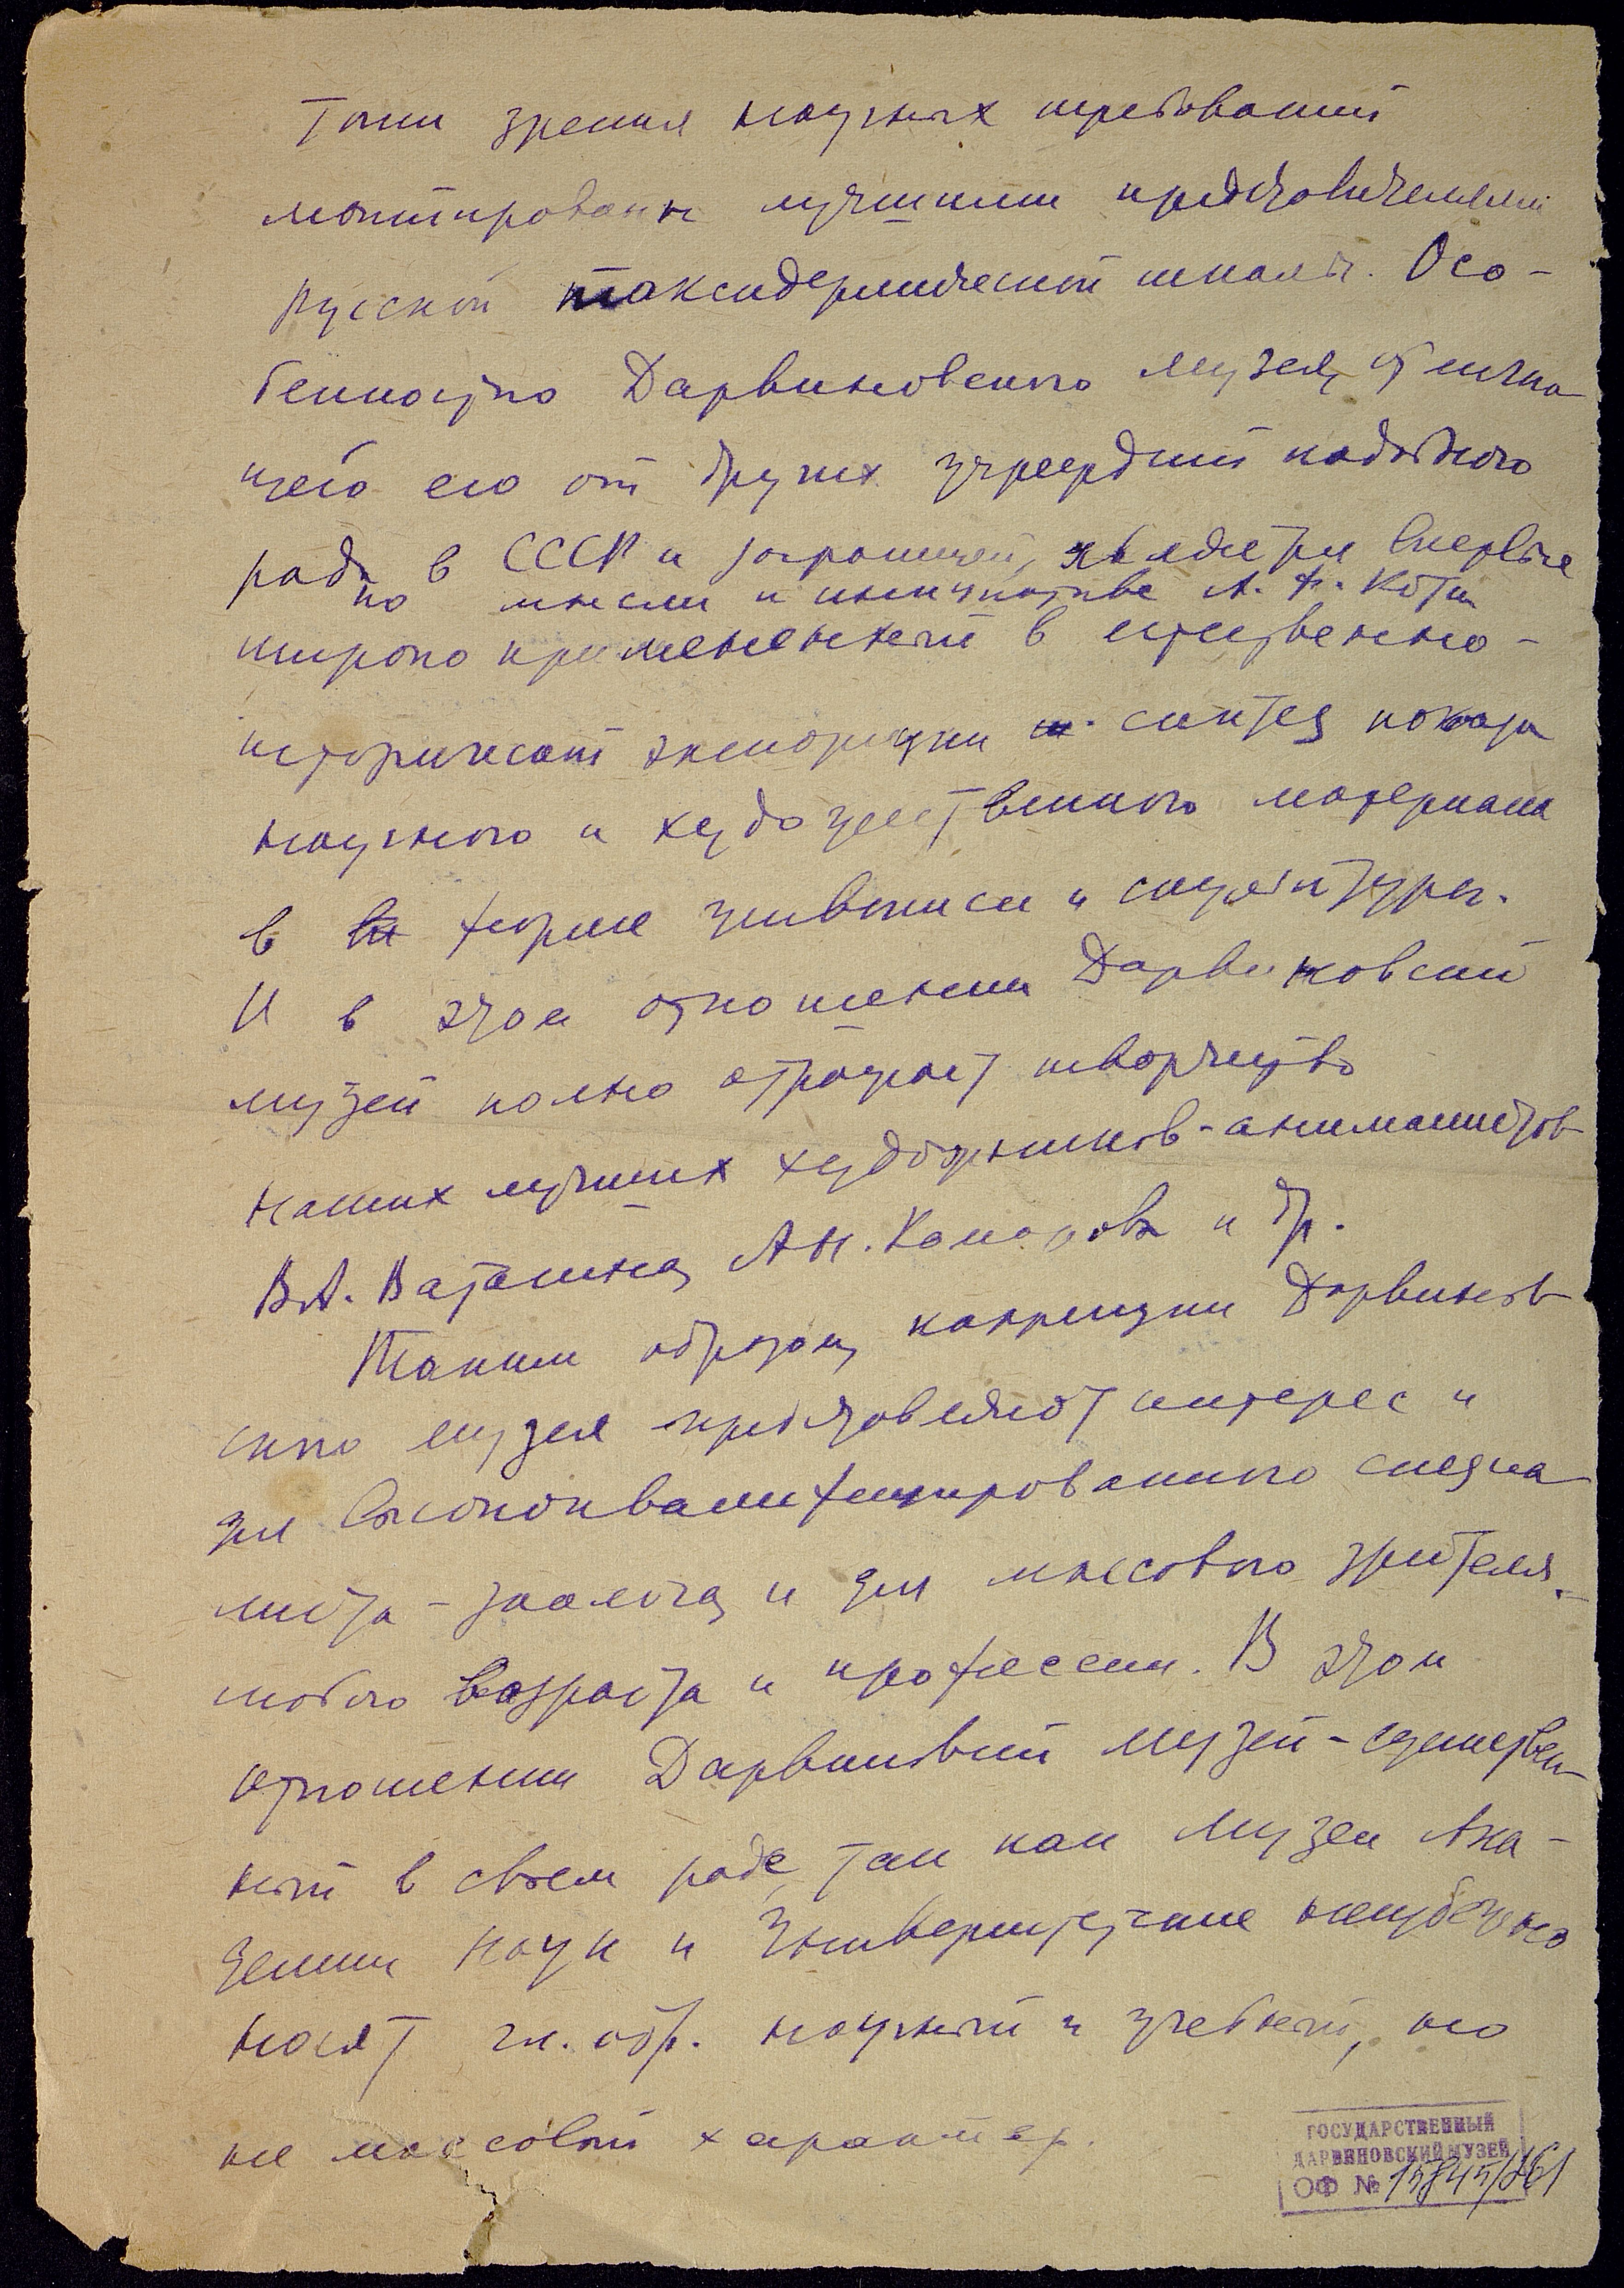 точки зрения научных требований
монтированы лучшими представителями
русской таксидермической школы. Осо-
бенностью Дарвиновского музея, отличаю-
щего его от других учреждений подобного
рода в СССР и заграницей, является впервые
по мысли и инициативе А. Ф. Котса
широко примененный в естественно-
исторической экспозиции синтез показа
научного и художественного материала
в форме живописи и скульптуры.
И в этом отношении Дарвиновский
музей полно отражает творчество
наших лучших художников-анималистов
В.А. Ватагина, Ан. Комарова и др.
Таким образом, коллекции Дарвинов-
ского музея представляют интерес и
для высококвалифицированного специа-
листа-зоолога, и для массового зрителя,-
любого возраста и профессии. В этом
отношении Дарвиновский музей - единствен-
ный в своем роде, так как музеи Ака-
демии Наук и Университетские неизбежно
носят гл. обр. научный и учебный, но
не массовый характер.
ГОСУДАРСТВЕННЫЙ
ДАРВИНОВСКИЙ МУЗЕЙ
ОФ №